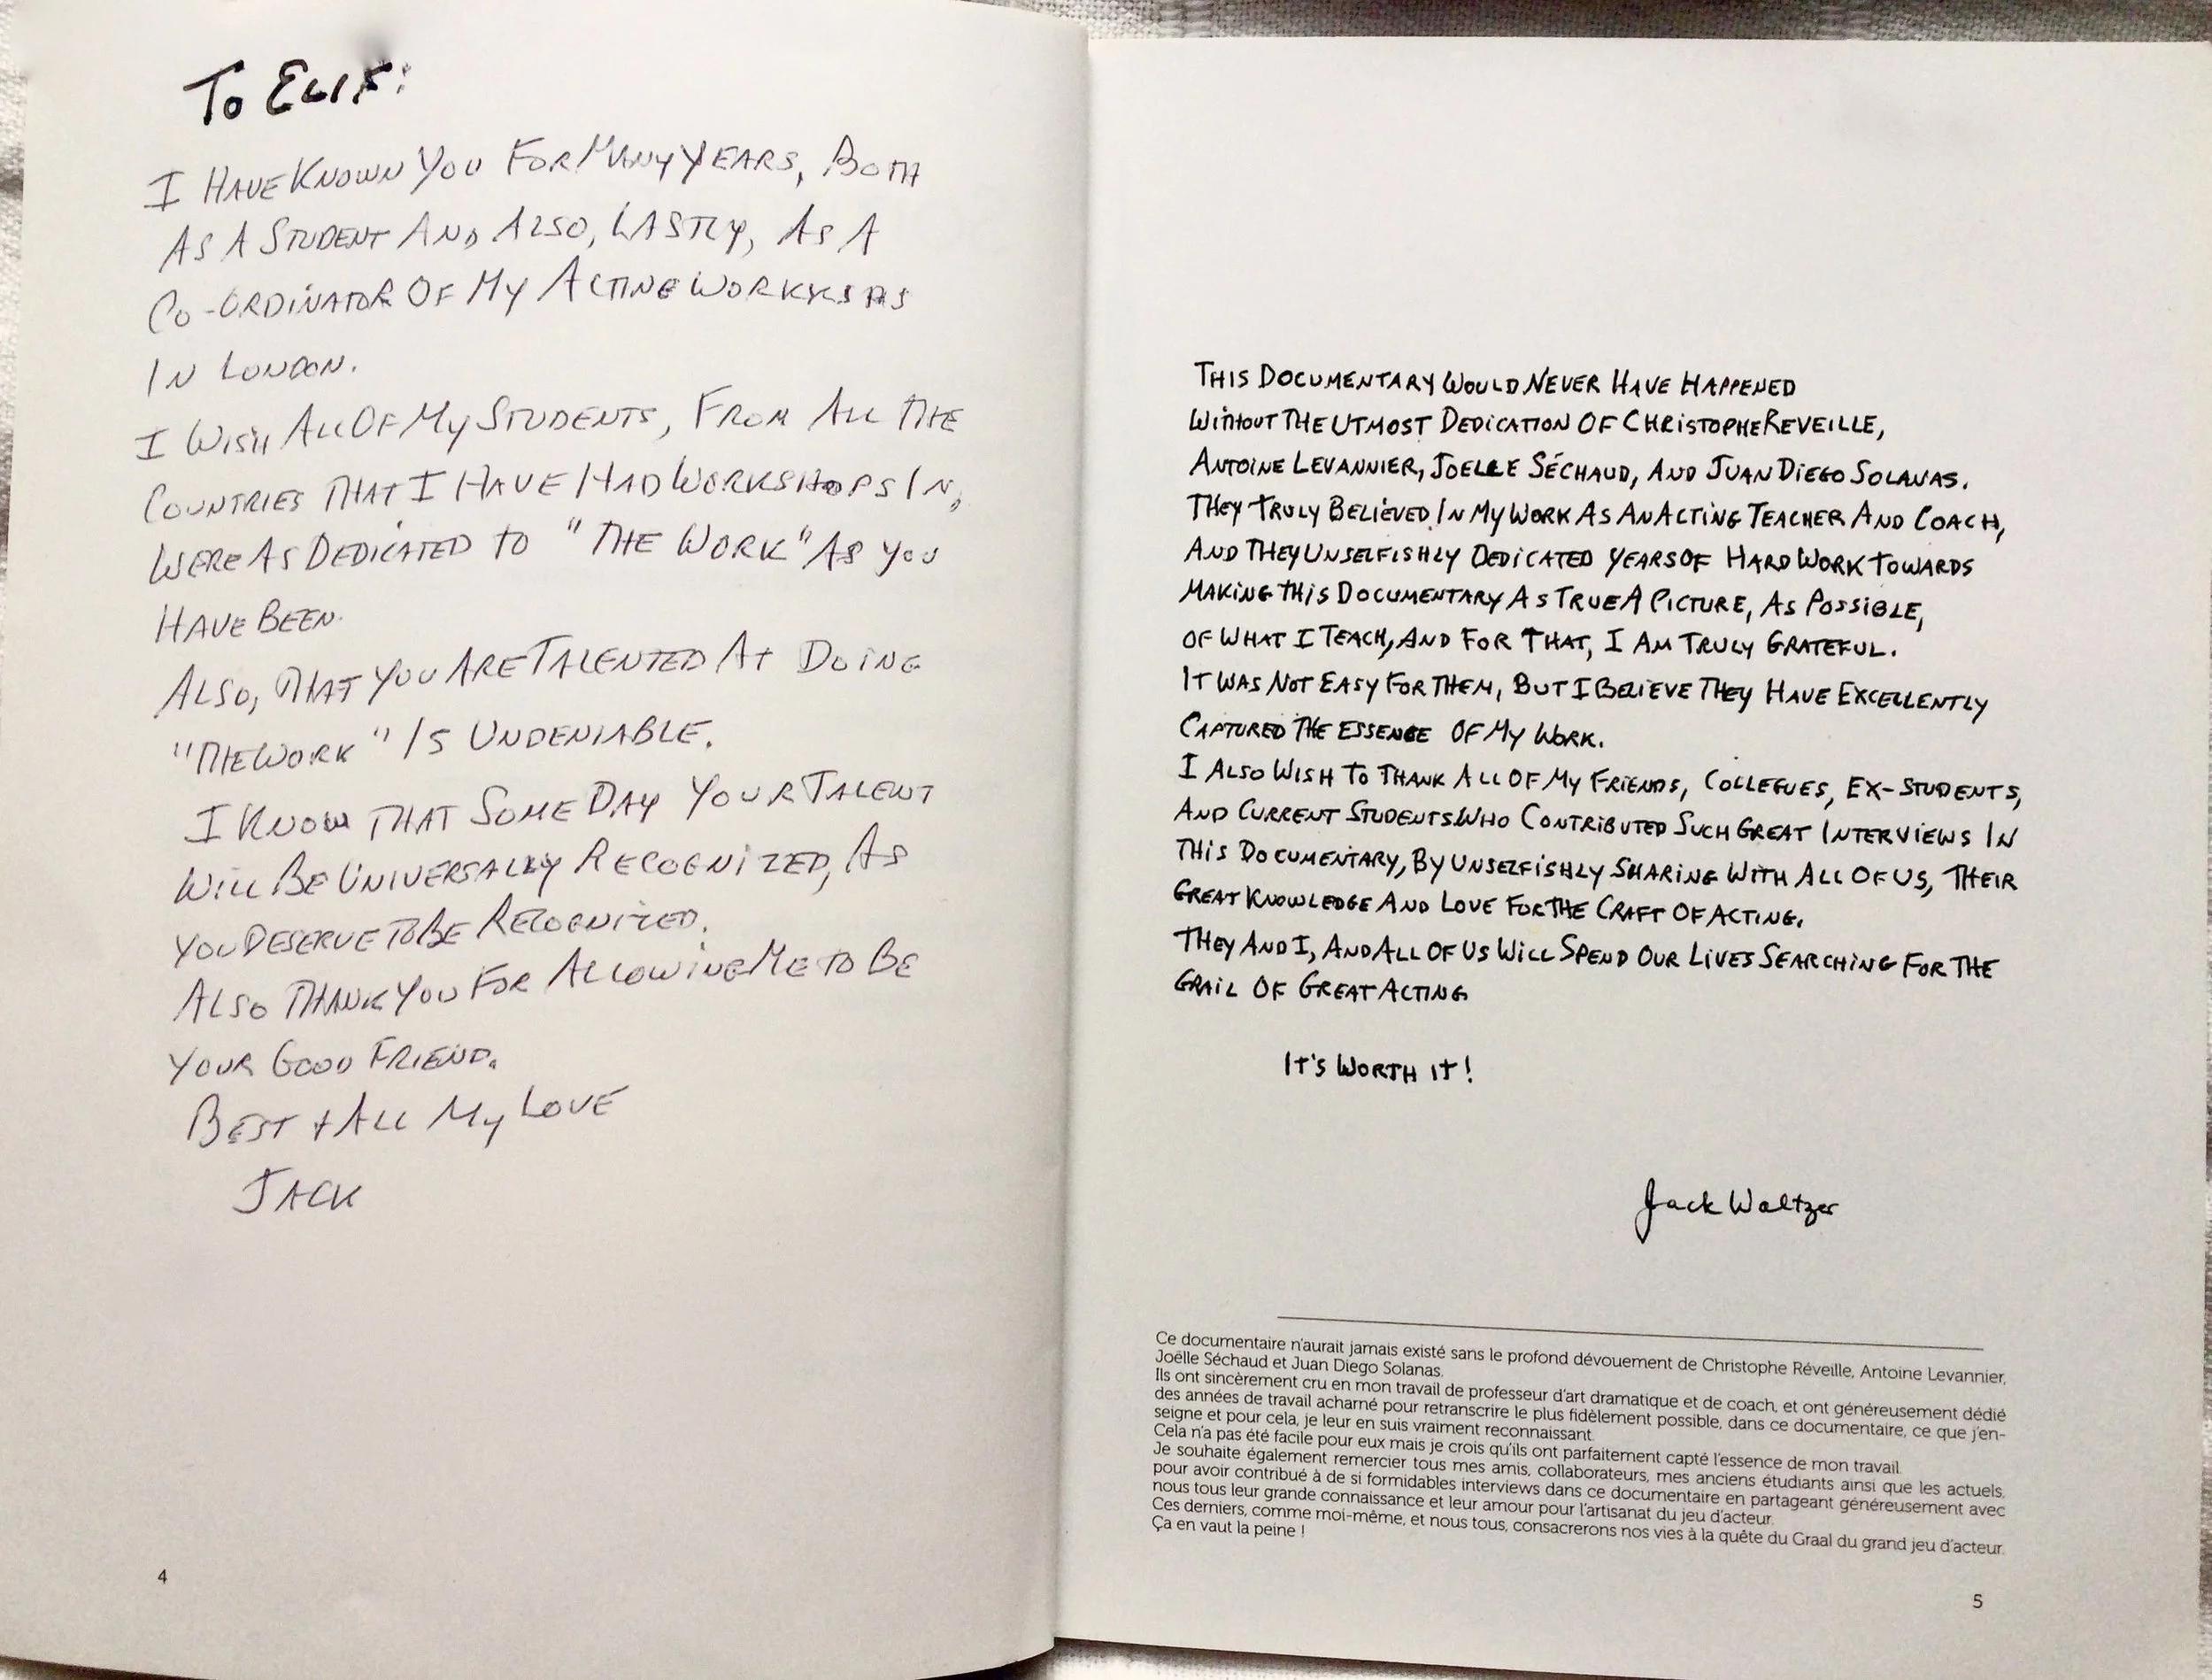 TO ELIF:
I HAVE KNOWN YOU FOR MANY YEARS, BOTH
AS A STUDENT AND ALSO, LASTLY, AS A
CO-ORDINATOR OF MY ACTING
IN LONDON.
I WISH ALL OF MY STUDENTS, FROM ALL THE
COUNTRIES THAT I HAVE HAD WORKSHOPS IN,
WERE AS DEDICATED TO "THE WORK" AS YOU
HAVE BEEN.
ALSO, THAT YOU ARE TALENTED AT DOING
"THE WORK" IS UNDENIABLE.
I KNOW THAT SOME DAY YOUR TALENT
WILL BE UNIVERSALLY RECOGNIZED, AS
YOU DESERVE TO BE RECOGNIZED.
ALSO THANK YOU FOR ALLOWING ME TO BE
YOUR GOOD FRIEND.
BEST + ALL MY LOVE
JACK
4
THIS DOCUMENTARY WOULD NEVER HAVE HAPPENED
WITHOUT THE UTMOST DEDICATION OF CHRISTOPHE REVEILLE,
ANTOINE LEVANNIER, JOELLE SÉCHAUD, AND JUAN DIEGO SOLANAS.
THEY TRULY BELIEVED IN MY WORK AS AN ACTING TEACHER AND COACH,
AND THEY UNSELFISHLY DEDICATED YEARS OF HARD WORK TOWARDS
MAKING THIS DOCUMENTARY AS TRUE A PICTURE, AS POSSIBLE,
OF WHAT I TEACH, AND FOR THAT, I AM TRULY GRATEFUL.
IT WAS NOT EASY FOR THEM, BUT I BELIEVE THEY HAVE EXCELLENTLY
CAPTURED THE ESSENCE OF MY WORK.
I ALSO WISH TO THANK ALL OF MY FRIENDS, COLLEGUES, EX-STUDENTS,
AND CURRENT STUDENTS WHO CONTRIBUTED SUCH GREAT INTERVIEWS IN
THIS DOCUMENTARY, BY UNSELFISHLY SHARING WITH ALL OF US, THEIR
GREAT KNOWLEDGE AND LOVE FOR THE CRAFT OF ACTING.
THEY AND I, AND ALL OF US WILL SPEND OUR LIVES SEARCHING FOR THE
GRAIL OF GREAT ACTING
IT'S WORTH IT!
Jack Waltzer
Ce documentaire n'aurait jamais existé sans le profond dévouement de Christophe Réveille, Antoine Levannier,
Joëlle Séchaud et Juan Diego Solanas.
Ils ont sincèrement cru en mon travail de professeur d'art dramatique et de coach, et ont généreusement dédié
des années de travail acharné pour retranscrire le plus fidèlement possible, dans ce documentaire, ce que j'en-
seigne et pour cela, je leur en suis vraiment reconnaissant.
Cela n'a pas été facile pour eux mais je crois qu'ils ont parfaitement capté l'essence de mon travail.
Je souhaite également remercier tous mes amis, collaborateurs, mes anciens étudiants ainsi que les actuels,
pour avoir contribué à de si formidables interviews dans ce documentaire en partageant généreusement avec
nous tous leur grande connaissance et leur amour pour l'artisanat du jeu d'acteur.
Ces derniers, comme moi-même, et nous tous, consacrerons nos vies à la quête du Graal du grand jeu d'acteur.
Ça en vaut la peine !
5